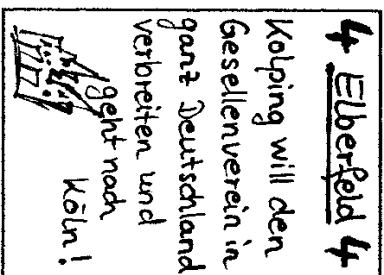 4 Elberfeld 4
Kolping will den
Gesellenverein in
ganz Deutschland
verbreiten und
geht nach
Köln!